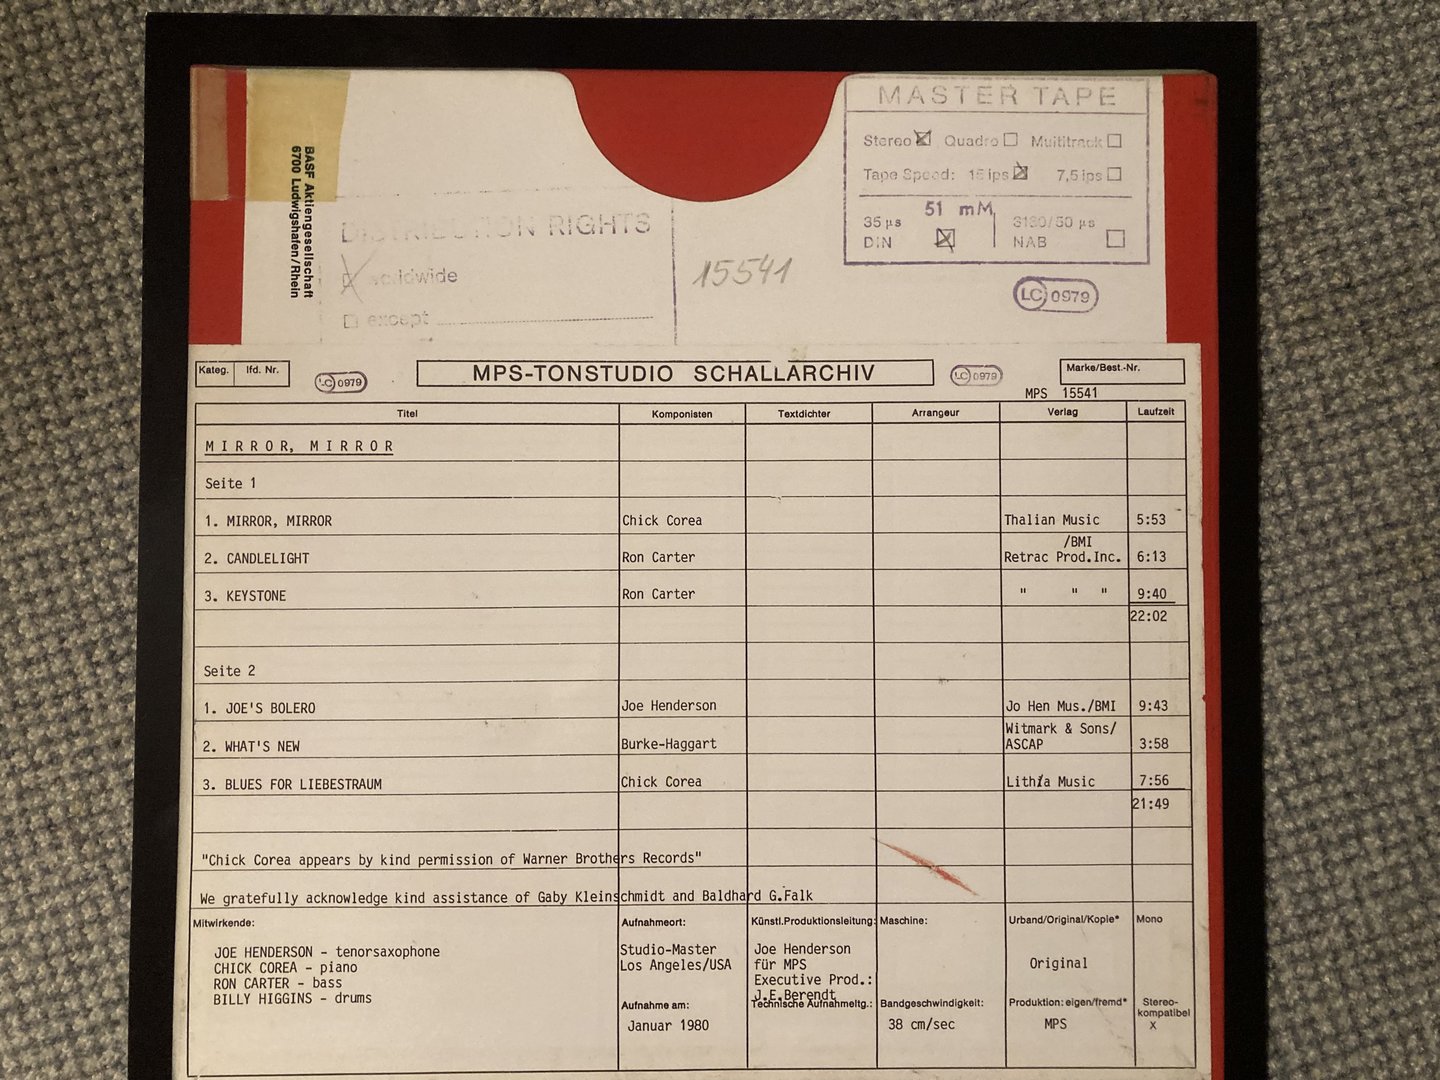 MASTER TAPE
Stereo Quadro Multitrack
Tape Speed: 15 ips 7,5 ips
51 mM
35 µs 3180/50 µs
DIN NAB
BASF Aktiengesellschaft
6700 Ludwigshafen/Rhein
DISTRIBUTION RIGHTS
worldwide
except
15541
LC 0979
Kateg. lfd. Nr.
LC 0979
MPS-TONSTUDIO SCHALLARCHIV
LC 0979
Marke/Best.-Nr.
MPS 15541
Titel Komponisten Textdichter Arrangeur Verlag Laufzeit
MIRROR, MIRROR
Seite 1
1. MIRROR, MIRROR Chick Corea Thalian Music 5:53
/BMI
2. CANDLELIGHT Ron Carter Retrac Prod.Inc. 6:13
3. KEYSTONE Ron Carter " " " 9:40
22:02
Seite 2
1. JOE'S BOLERO Joe Henderson Jo Hen Mus./BMI 9:43
Witmark & Sons/
2. WHAT'S NEW Burke-Haggart ASCAP 3:58
3. BLUES FOR LIEBESTRAUM Chick Corea Lithia Music 7:56
21:49
"Chick Corea appears by kind permission of Warner Brothers Records"
We gratefully acknowledge kind assistance of Gaby Kleinschmidt and Baldhard G.Falk
Mitwirkende:
JOE HENDERSON - tenorsaxophone
CHICK COREA - piano
RON CARTER - bass
BILLY HIGGINS - drums
Aufnahmeort:
Studio-Master
Los Angeles/USA
Aufnahme am:
Januar 1980
Künstl.Produktionsleitung:
Joe Henderson
für MPS
Executive Prod.:
J.E.Berendt
Technische Aufnahmeltg.:
Maschine:
Bandgeschwindigkeit:
38 cm/sec
Urband/Original/Kopie*
Original
Produktion: eigen/fremd*
MPS
Mono
Stereo-
kompatibel
X